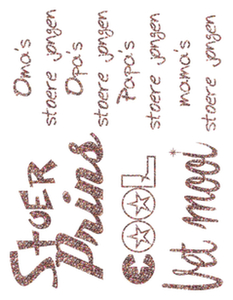 Oma's
stoere jongen
Opa's
stoere jongen
Papa's
stoere jongen
mama's
stoere jongen
StOER
Prins
COOL
Vet mooi